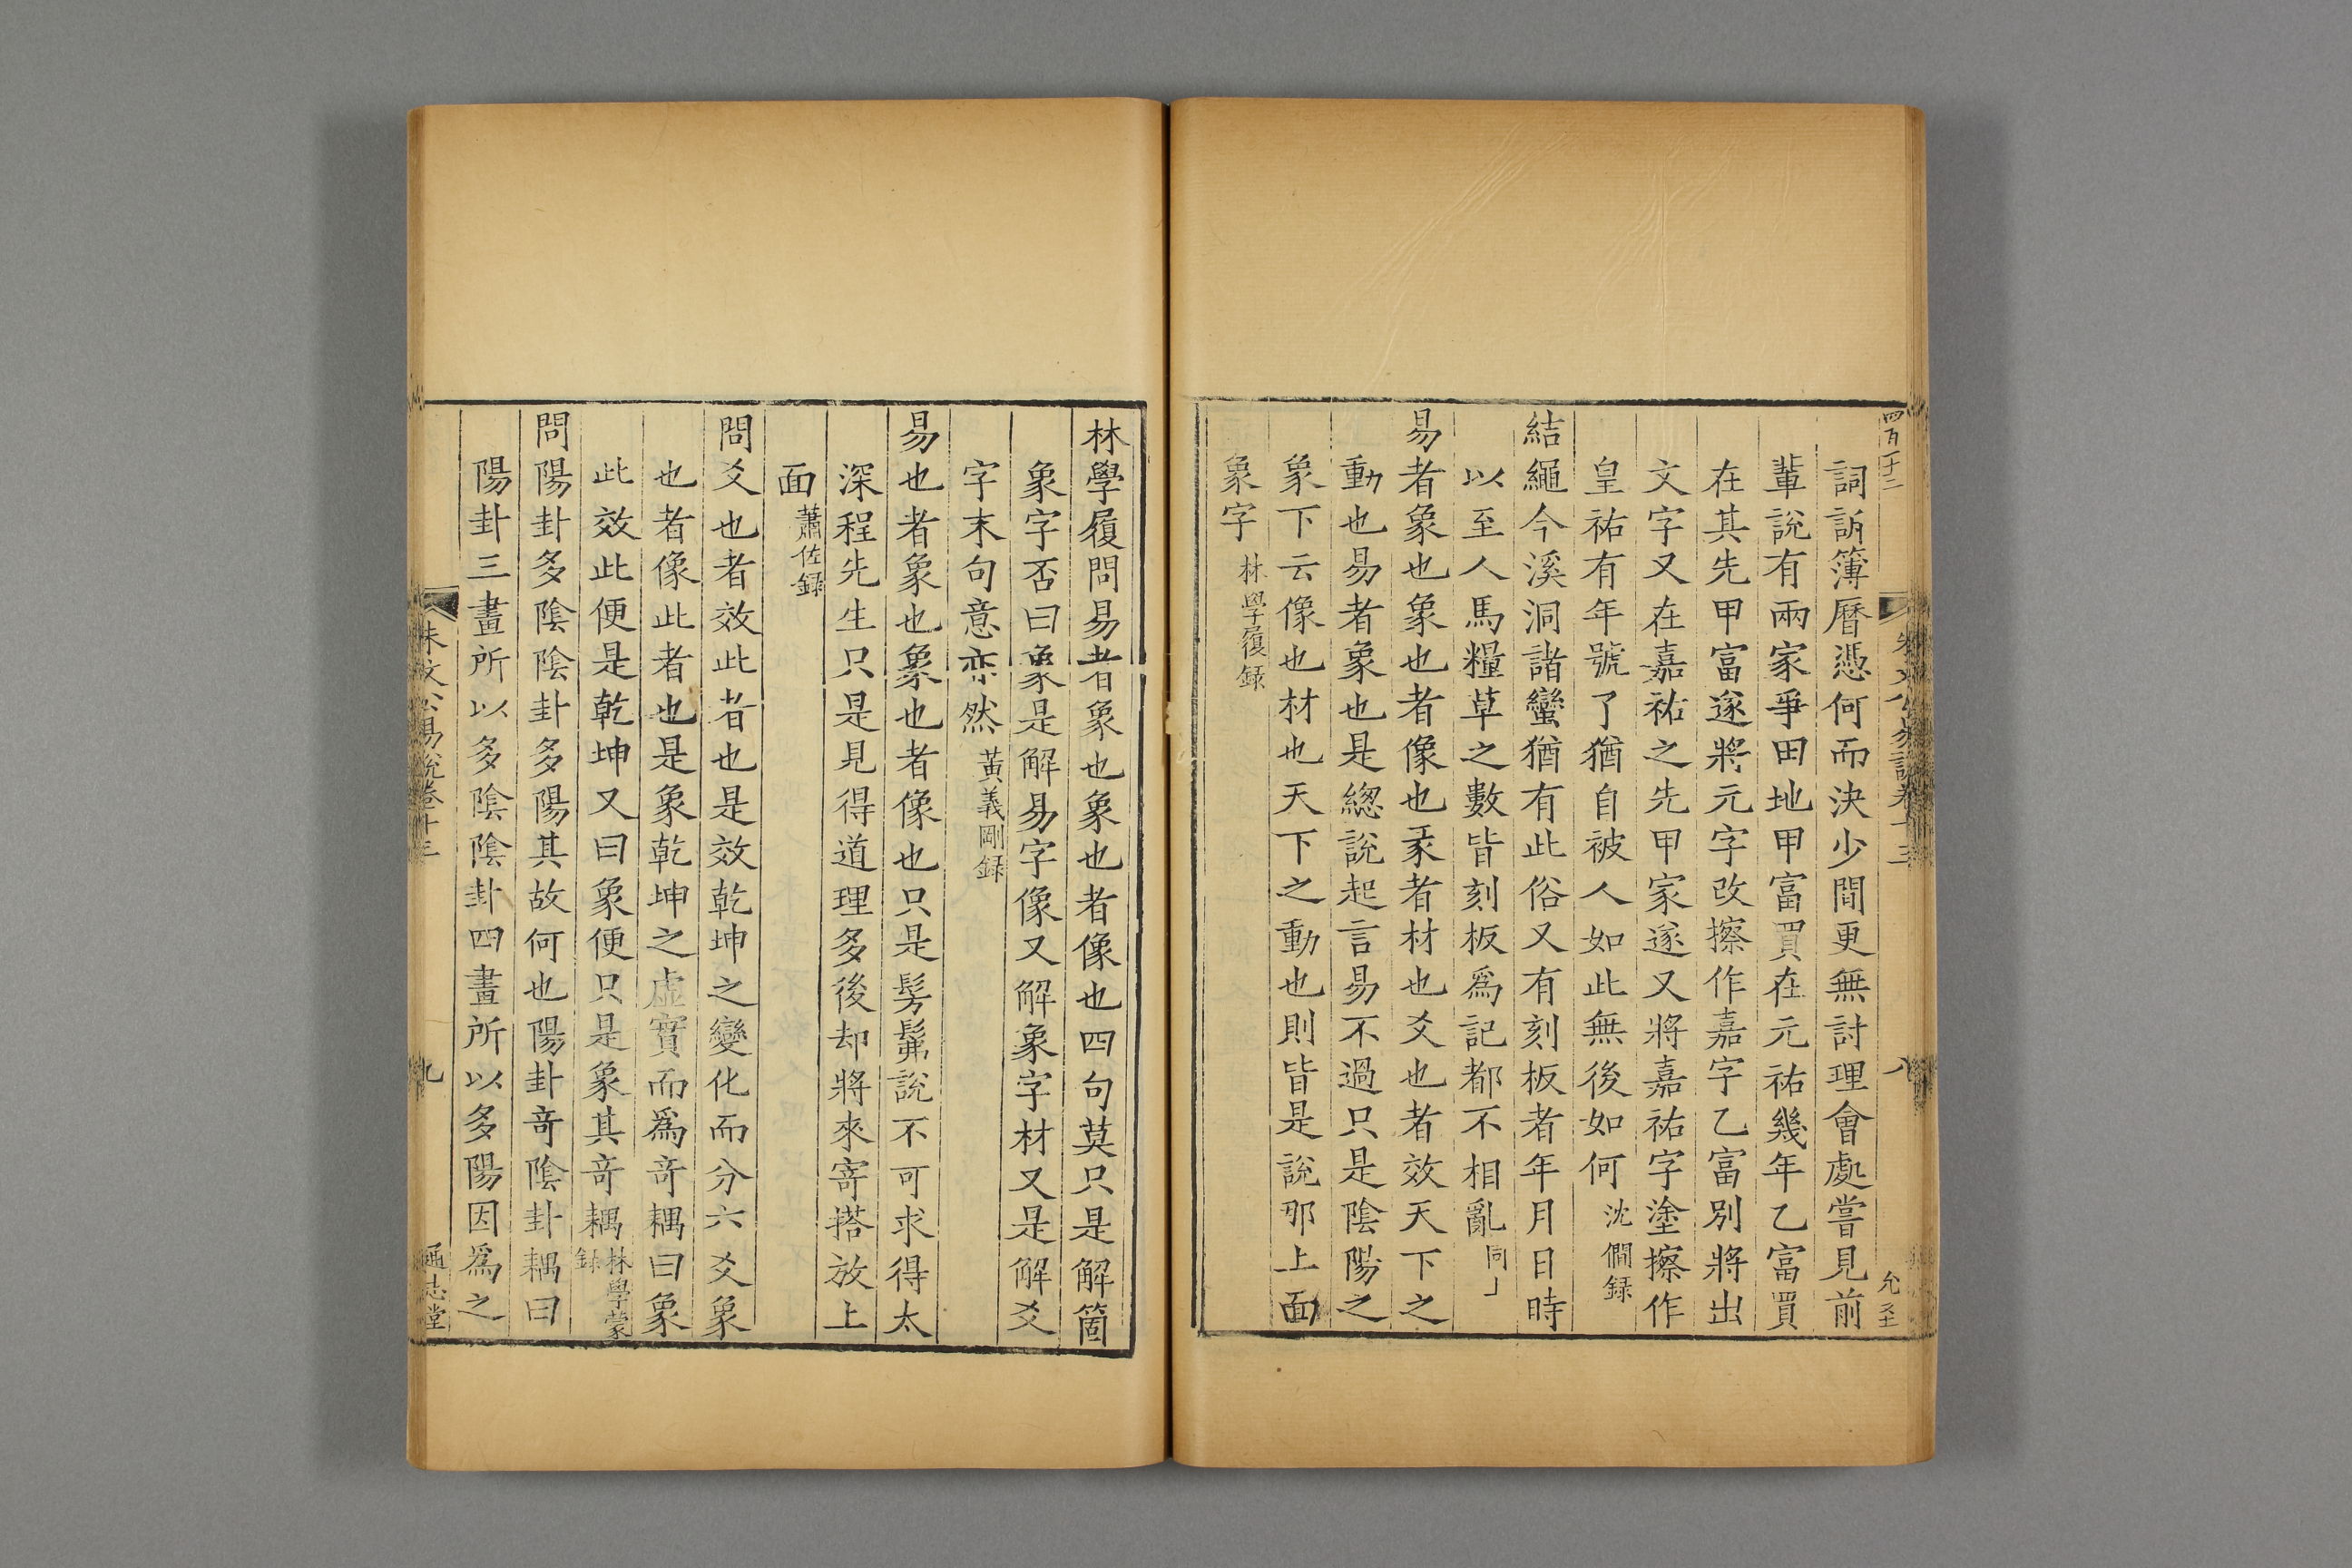 詞訴簿曆憑何而決少間更無討理會處嘗見前
輩說有兩家爭田地甲富買在元祐幾年乙富買
在其先甲富遂將元字改擦作嘉字乙富別將出
文字又在嘉祐之先甲家遂又將嘉祐字塗擦作
皇祐有年號了猶自被人如此無後如何沈僩録
結繩今溪洞諸蠻猶有此俗又有刻板者年月日時
以至人馬糧草之數皆刻板爲記都不相亂同上
易者象也象也者像也彖者材也爻也者效天下之
動也易者象也是緫說起言易不過只是陰陽之
象下云像也材也天下之動也則皆是說那上面
象字林學履録
林學履問易者象也象也者像也四句莫只是解箇
象字否曰象是解易字像又解象字材又是解爻
字末句意亦然黃義剛録
易也者象也象也者像也只是髣髴說不可求得太
深程先生只是見得道理多後却將來寄搭放上
面蕭佐録
問爻也者效此者也是效乾坤之變化而分六爻象
也者像此者也是象乾坤之虛實而爲竒耦曰象
此效此便是乾坤又曰象便只是象其竒耦林學蒙録
問陽卦多陰陰卦多陽其故何也陽卦竒陰卦耦曰
陽卦三畫所以多陰陰卦四畫所以多陽因爲之
朱文公易說卷十三
九
通志堂